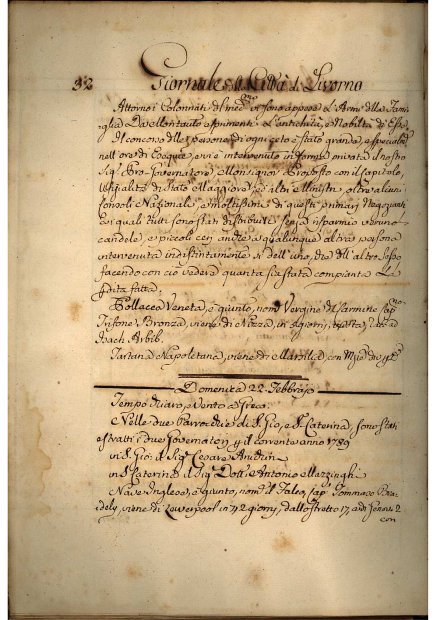 32 Giornale della Città di Livorno
Attorno i Colonnati del med.mo vi sono appese l'Armi della Fami-
glia Davellontauto esprimenti l'antichità, e Nobiltà di Esse
Il concorso delle persone di ogni ceto è stato grande, e specialm.e
nell'ore di Esequie, ov'è intervenuto in forma privata il nostro
Sig.r Gro. Governatore, Monsignor Proposto con il Capitolo,
Uffizialità di Stato Maggiore, ed altri Ministri, oltre alcuni
Consoli Nazionali, e moltissimi di questi primarj Negozianti
a quali tutti sono stati distribuiti senza risparmio veruno
candele, e piccoli ceri anche a qualunque altra persona
intervenuta indistintamente sì dell'uno, che dell'altro sesso
facendo con ciò vedere quanta sia stata compianta la
Pollacca Veneta, è giunto, nom. Vergine del Carmine, Cap.no
Trifone Bronza, viene di Nizza, in 2 giorni,
Isach Arbib.
Tartana Napoletana, viene di Marsilia, con
Domenica 22: Febbrajo
Tempo chiaro, e Vento a Greco.
Nelle due Parrocchie di S. Gio. e S. Caterina, sono stati
estratti i due Governatori p. il corrente anno 1789
in S. Gio: il Sig.r Cesare
in S. Caterina il Sig. Dott.e Antonio Mazzinghi
Nave Inglese, è giunto, nom. il Taleo, Cap. Tommaso Bra-
dely, viene di Liverpool in 42 giorni, dallo stretto 17, a di Genov. 2
con